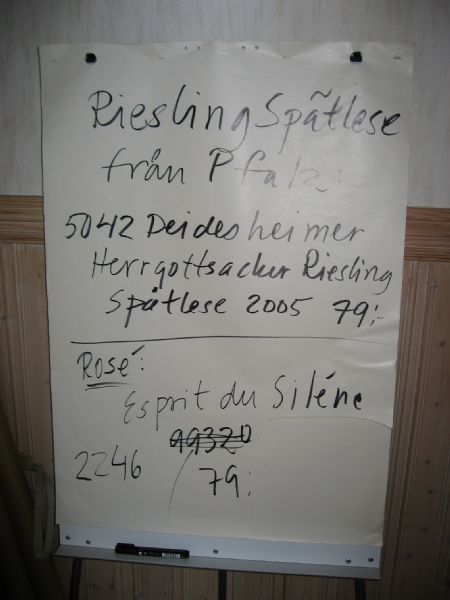 Riesling Spätlese
från Pfalz:
5042 Deidesheimer
Herrgottsacker Riesling
Spätlese 2005 79:-
Rosé:
Esprit du Siléne
99320
2246
79: